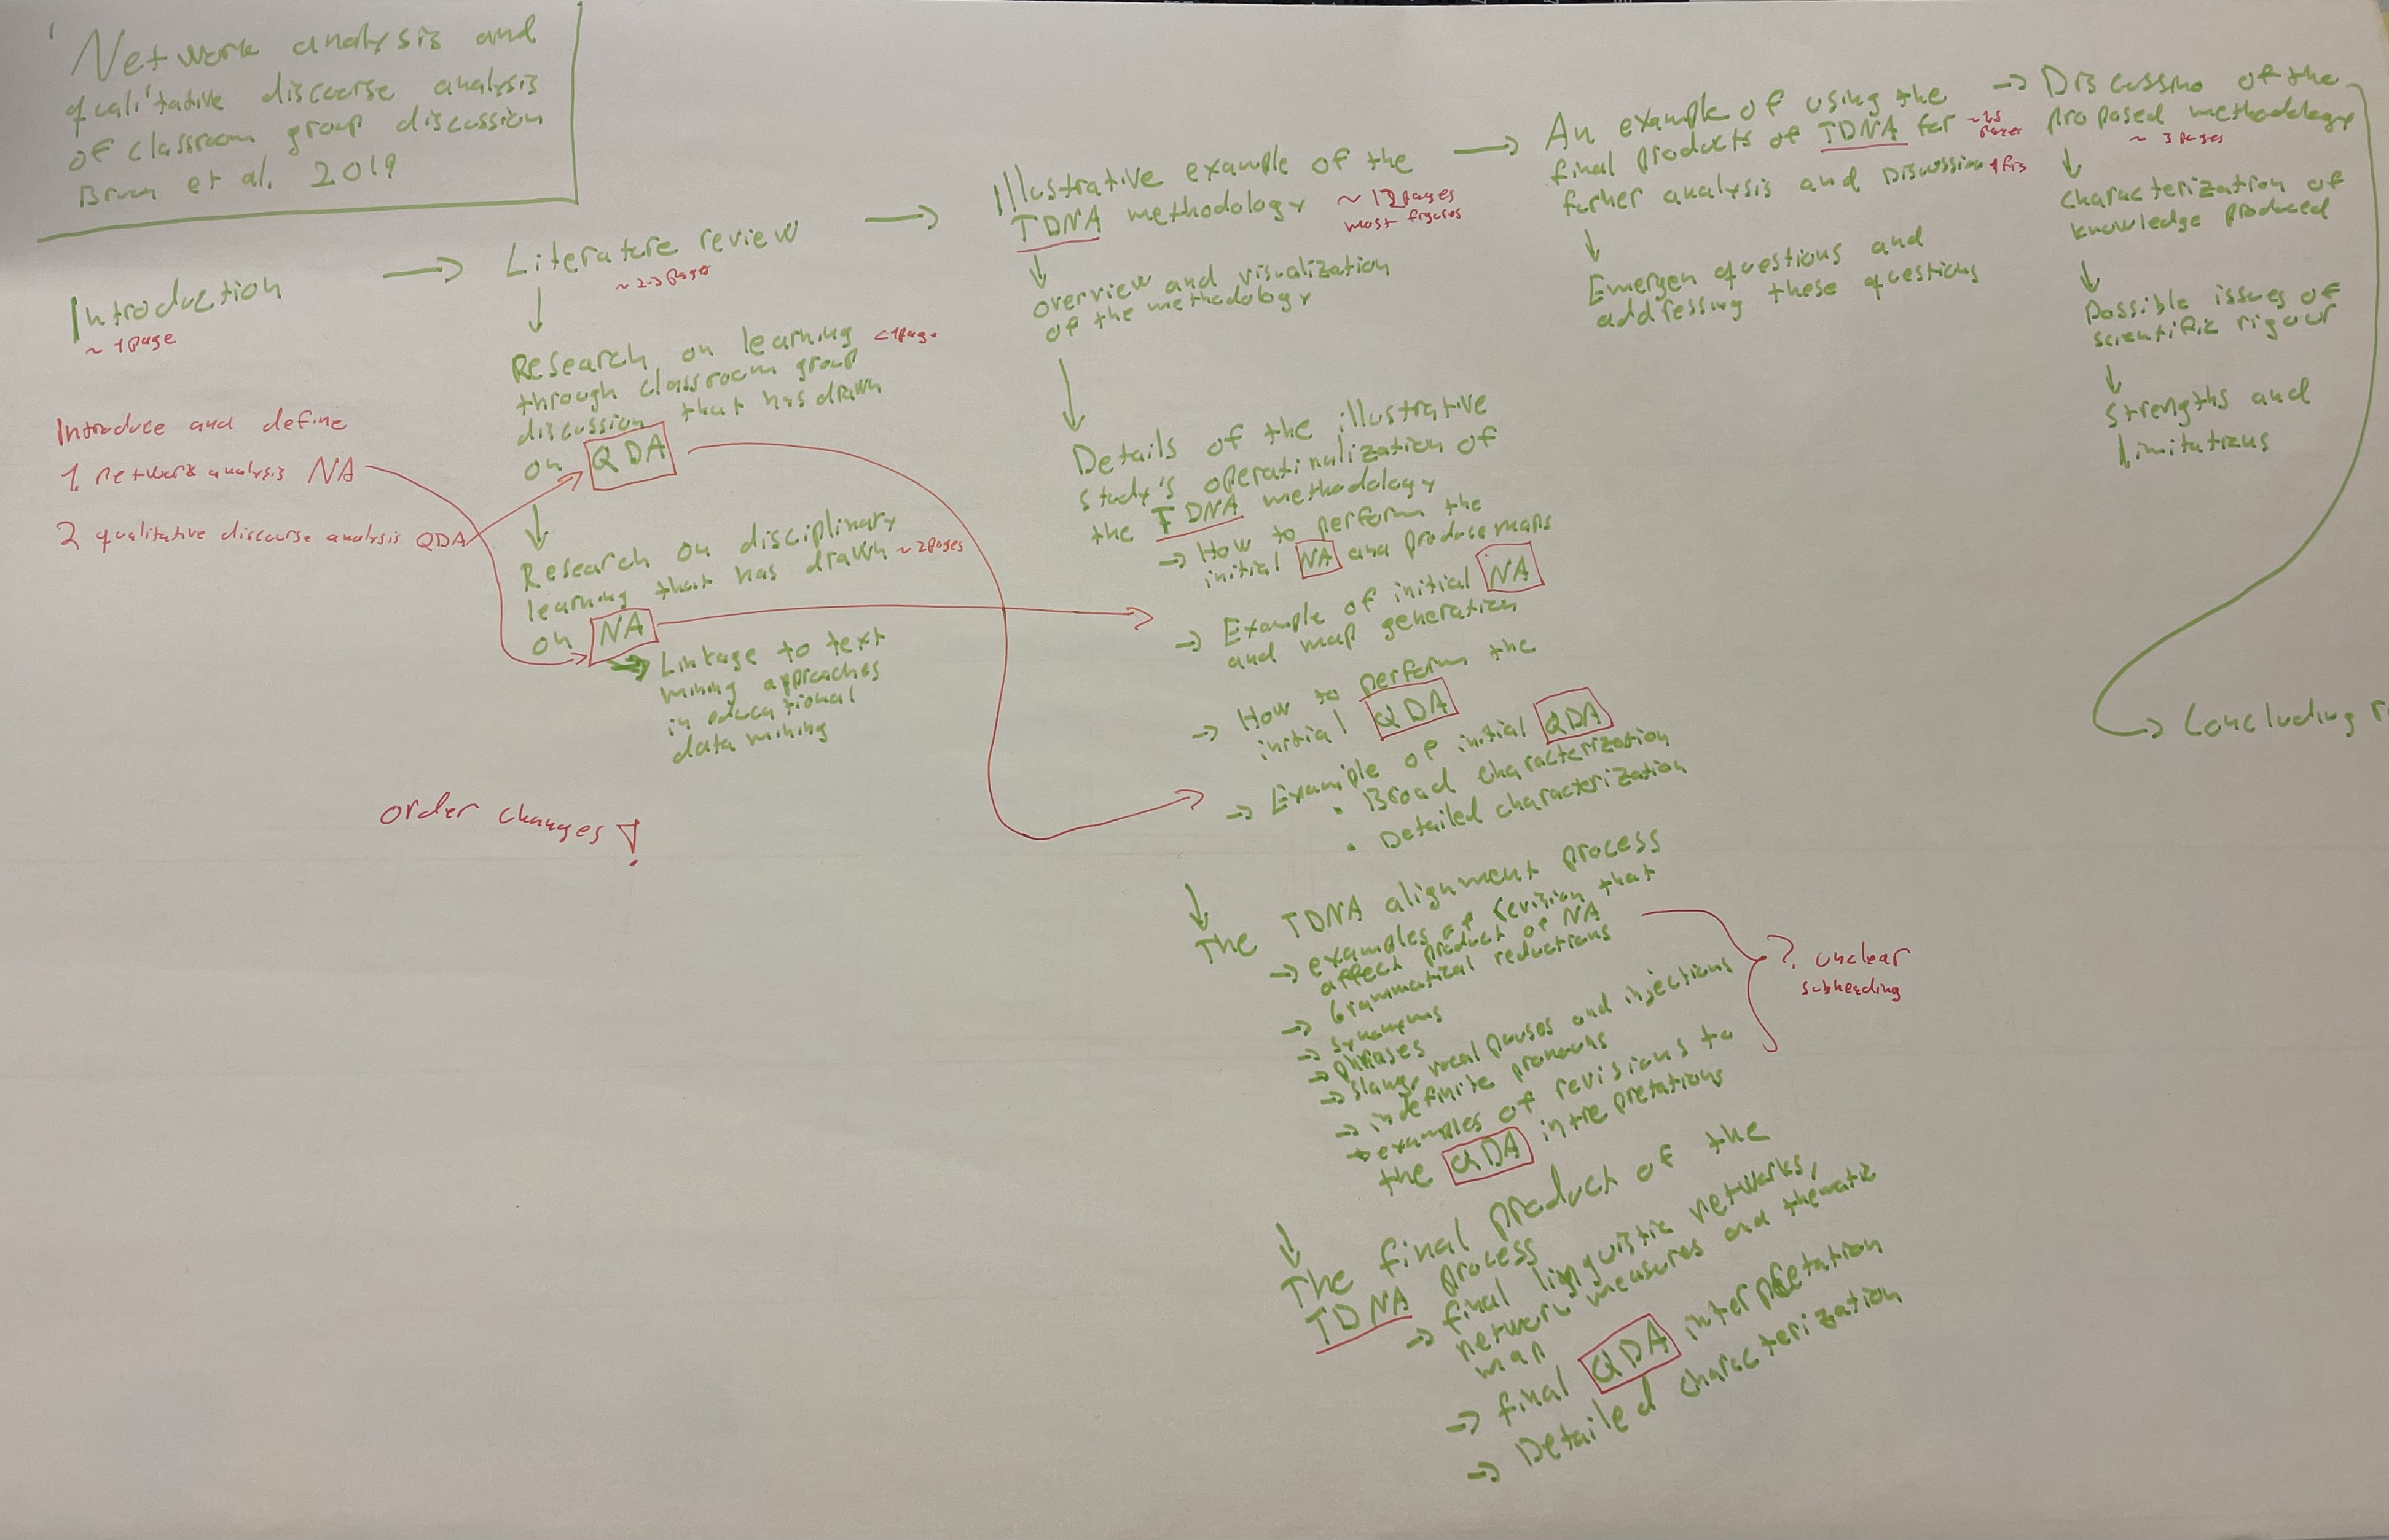 Network analysis and
qualitative discourse analysis
of classroom group discussion
Bruun et al. 2019
Introduction
~ 1 page
Introduce and define
1. network analysis NA
2 qualitative discourse analysis QDA
order changes!
→ Literature review
~ 2-3 pages
↓
Research on learning < 1 page
through classroom group
discussion that has drawn
on QDA
↓
Research on disciplinary
learning that has drawn ~ 2 pages
on NA
→ Linkage to text
mining approaches
in educational
data mining
→ Illustrative example of the
TDNA methodology ~ 12 pages
most figures
↓
overview and visualization
of the methodology
↓
Details of the illustrative
study's operatinalization of
the TDNA methodology
→ How to perform the
initial NA and produce maps
→ Example of initial NA
and map generation
→ How to perform the
initial QDA
→ Example of initial QDA
• Broad characterization
• Detailed characterization
↓
The TDNA alignment process
→ examples of revision that
affect product of NA
→ Grammatical reductions
→ Synonyms
→ phrases
→ slang, vocal pauses and injections
→ indefinite pronouns
→ examples of revisions to
the QDA intrepretations
? unclear
subheading
↓
The final product of the
TDNA process
→ final linguistic networks,
network measures and thematic
map
→ final QDA interpretation
→ Detailed characterization
→ An example of using the
final products of TDNA for
further analysis and Discussion 1 fig
↓
Emergen questions and
addressing these questions
→ Discussino of the
proposed methodology
~ 3 pages
↓
characterization of
knowledge produced
↓
Possible issues of
scientific rigour
↓
Strengths and
limitations
→ Concluding r